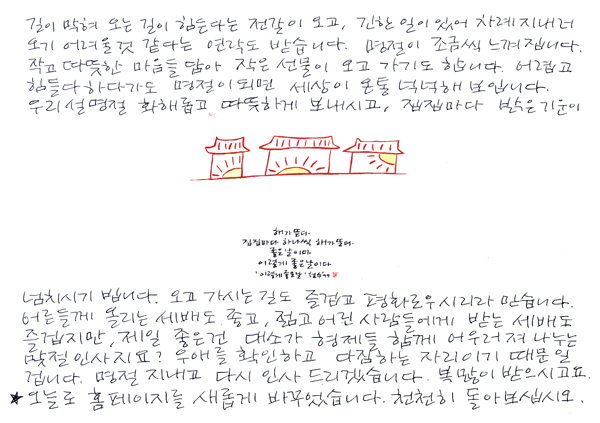 길이 막혀 오는 길이 힘든다는 전갈이 오고, 긴한 일이 있어 차례 지내러
오기 어려울것 같다는 연락도 받습니다. 명절이 조금씩 느껴집니다.
작고 따뜻한 마음들 담아 작은 선물이 오고 가기도 합니다. 어렵고
힘들다 하다가도 명절이 되면 세상이 온통 넉넉해 보입니다.
우리 설명절 화해롭고 따뜻하게 보내시고, 집집마다 밝은 기운이
해가 뜬다.
집집마다 하나씩 해가 뜬다.
좋은 날이다.
이렇게 좋은 날이다
넘치시기 빕니다. 오고 가시는 길도 즐겁고 평화로우시리라 믿습니다.
어른들께 올리는 세배도 좋고, 젊고 어린 사람들에게 받는 세배도
즐겁지만, 제일 좋은건 대소가 형제들 함께 어우러져 나누는
맞절 인사지요? 우애를 확인하고 다짐하는 자리이기 때문일
겁니다. 명절 지내고 다시 인사 드리겠습니다. 복 많이 받으시고요.
★ 오늘로 홈페이지를 새롭게 바꾸었습니다. 천천히 돌아보십시오.